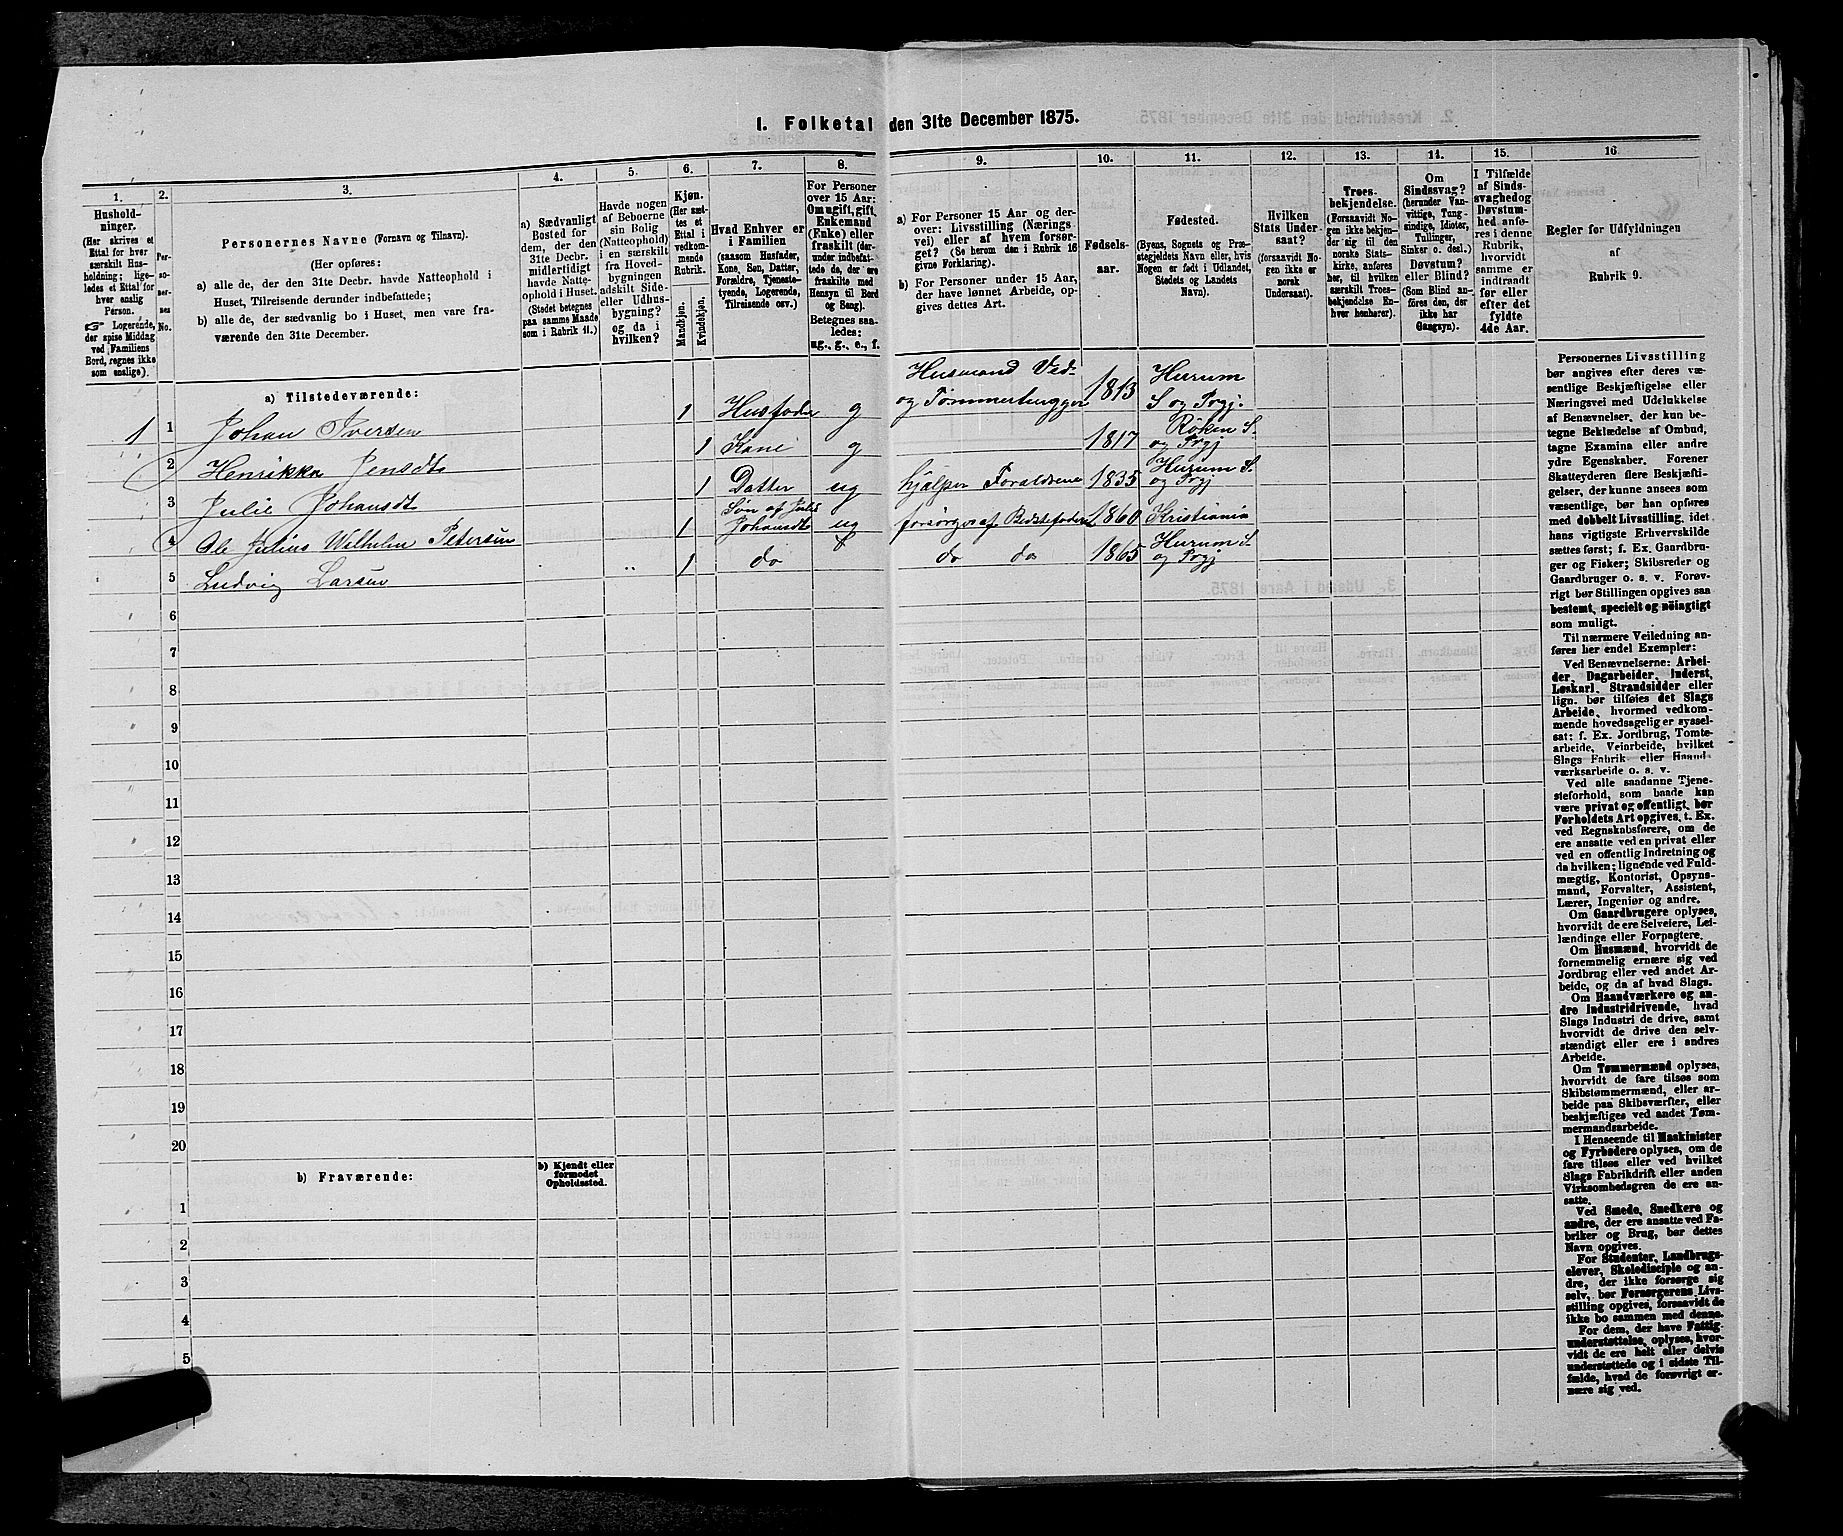 I. Folketal den 31te December 1875.
1. 2. 3. 4. 5. 6. 7. 8. 9. 10. 11. 12. 13. 14. 15. 16
Hushold-
ninger.
(Her skrives et
Ettal for hver
særskilt Hus-
holdning; lige-
ledes et Ettal for
hver enslig
Person.
☞ Logerende,
der spise Middag
ved Familiens
Bord, regnes ikke
som enslige).
Per-
so-
ner-
nes
No.
Personernes Navne (Fornavn og Tilnavn).
(Her opføres:
a) alle de, der den 31te Decbr. havde Natteophold i
Huset, Tilreisende derunder indbefattede;
b) alle de, der sædvanlig bo i Huset, men vare fra-
værende den 31te December.
a) Sædvanligt
Bosted for
dem, der den
31te Decbr.
midlertidigt
havde Natte-
ophold i Huset.
(Stedet betegnes
paa samme Maade
som i Rubrik 11.)
Havde nogen
af Beboerne
sin Bolig
(Natteophold)
i en særskilt
fra Hoved-
bygningen
adskilt Side-
eller Udhus-
bygning?
og da i
hvilken?
Kjøn.
(Her sæt-
tes et
Ettal i
vedkom-
mende
Rubrik.
Mandkjøn.
Kvindekjøn.
Hvad Enhver er
i Familien
(saasom Husfader,
Kone, Søn, Datter,
Forældre, Tjeneste-
tyende, Logerende,
Tilreisende osv.)
For Personer
over 15 Aar:
Om ugift, gift,
Enkemand
(Enke) eller
fraskilt (der-
under indbefat-
tede de, der ere
fraskilte med
Hensyn til Bord
og Seng).
Betegnes saa-
ledes:
ug., g., e., f.
a) For Personer 15 Aar og der-
over: Livsstilling (Nærings-
vei) eller af hvem forsør-
get? (Se herom den i Rubrik 16
givne Forklaring).
b) For Personer under 15 Aar,
der have lønnet Arbeide, op-
gives dettes Art.
Fødsels-
aar.
Fødested.
(Byens, Sognets og Præ-
stegjeldets Navn eller, hvis
Nogen er født i Udlandet,
Stedets og Landets
Navn).
Hvilken
Stats Under-
saat?
(forsaavidt No-
gen ikke er
norsk
Undersaat).
Troes-
bekjendelse.
(Forsaavidt No-
gen ikke bekjen-
der sig til den
norske Stats-
kirke, anføres
her, til hvilken
særskilt Troes-
bekjendelse En-
hver henhører).
Om
Sindssvag?
(herunder Van-
vittige, Tung-
sindige, Idioter,
Tullinger,
Sinker o. desl.)
Døvstum?
eller Blind?
(Som Blind an-
føres den, der
ikke har
Gangsyn).
I Tilfælde
af Sinds-
svaghed og
Døvstum-
hed anfø-
res i denne
Rubrik,
hvorvidt
samme er
indtraadt
før eller
efter det
fyldte
4de Aar.
Regler for Udfyldningen
af
Rubrik 9.
a) Tilstedeværende:
1 1 Johan Iversen 1 Husfader g Husmand Ved-
og Tømmerhugger 1813 Hurum
S og Prgj.
2 Henrikka Jensdt 1 Kone g 1817 Røken S.
og Prgj
3 Julie Johansdt 1 Datter ug hjælper Forældrene 1835 Hurum S.
og Prgj
4 Ole Julius Wilhelm Petersen 1 Søn af Julie
Johansdt ug forsørges af Bedstefader 1860 Kristiania
5 Ludvig Larsen " 1 do do do 1865 Hurum S.
og Prgj
6
7
8
9
10
11
12
13
14
15
16
17
18
19
20
b) Fraværende:
b) Kjendt eller
formodet
Opholdssted.
1
2
3
4
5
Personernes Livsstilling
bør angives efter deres væ-
sentlige Beskjæftigelse eller
Næringsvei med Udelukkelse
af Benævnelser, der kun be-
tegne Beklædelse af Ombud,
tagne Examina eller andre
ydre Egenskaber. Forener
Skatteyderen flere Beskjæfti-
gelser, der kunne ansees som
væsentlige, bør han opføres
med dobbelt Livsstilling, idet
hans vigtigste Erhvervskilde
sættes først; f. Ex. Gaardbru-
ger og Fisker; Skibsreder og
Gaardbruger o. s. v. Forøv-
rigt bør Stillingen opgives saa
bestemt, specielt og nøiagtigt
som muligt.
Til nærmere Veiledning an-
føres her endel Exempler:
Ved Benævnelserne: Arbei-
der, Dagarbeider, Inderst,
Løskarl, Strandsidder eller
lign. bør tilføies det Slags
Arbeide, hvormed vedkom-
mende hovedsagelig er syssel-
sat; f. Ex. Jordbrug, Tomte-
arbeide, Veiarbeide, hvilket
Slags Fabrik eller Haand-
værksarbeide o. s. v.
Ved alle saadanne Tjene-
steforhold, som baade kan
være privat og offentligt, bør
Forholdets Art opgives, t. Ex.
ved Regnskabsførere, om de
ere ansatte ved en privat eller
ved en offentlig Indretning og
da hvilken; lignende ved Fuld-
mægtig, Kontorist, Opsyns-
mand, Forvalter, Assistent,
Lærer, Ingeniør og andre.
Om Gaardbrugere oplyses,
hvorvidt de ere Selveiere, Lei-
lændinge eller Forpagtere.
Om Husmænd, hvorvidt de
fornemmelig ernære sig ved
Jordbrug eller ved andet Ar-
beide, og da af hvad Slags.
Om Haandværkere og an-
dre Industridrivende, hvad
Slags Industri de drive, samt
hvorvidt de drive den selv-
stændigt eller ere i andres
Arbeide.
Om Tømmermænd oplyses,
hvorvidt de fare tilsøs som
Skibstømmermænd, eller ar-
beide paa Skibsværfter, eller
beskjæftiges ved andet Tøm-
mermandsarbeide.
I Henseende til Maskinister
og Fyrbødere oplyses, om de
fare tilsøs eller ved hvilket
Slags Fabrikdrift eller anden
Virksomhedsgren de ere an-
satte.
Ved Smede, Snedkere og
andre, der ere ansatte ved Fa-
briker og Brug, bør dettes
Navn opgives.
For Studenter, Landbrugs-
elever, Skoledisciple og an-
dre, der ikke forsørge sig
selv, bør Forsørgerens Livs-
stilling opgives, forsaavidt de
ikke bo sammen med denne.
For dem, der have Fattig-
understøttelse, oplyses, hvor-
vidt de ere helt eller delvis
understøttede og i sidste Til-
fælde, hvad de forøvrigt er-
nære sig ved.